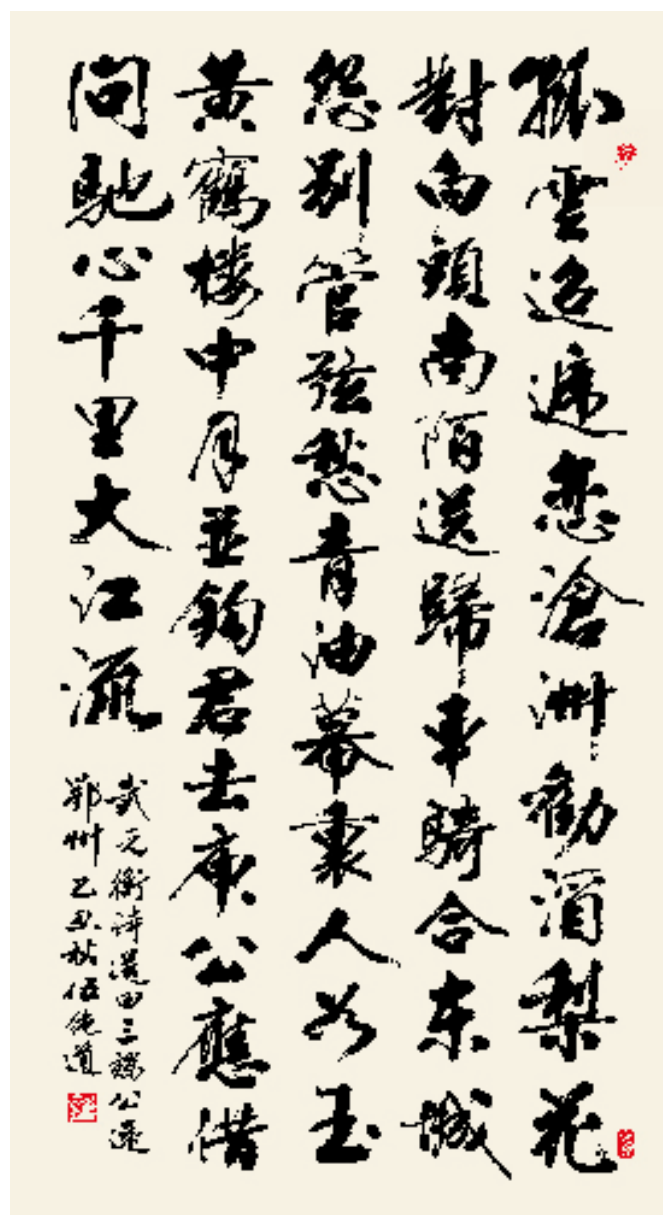 孤雲迢遞恋滄洲勸酒梨花
對白頭南陌送歸車騎合东城
怨别管弦愁青油幕裏人如玉
黄鶴楼中月並鈎君去庾公應借
問馳心千里大江流
武元衡诗送田三端公還
鄂州 乙丑秋伍純道